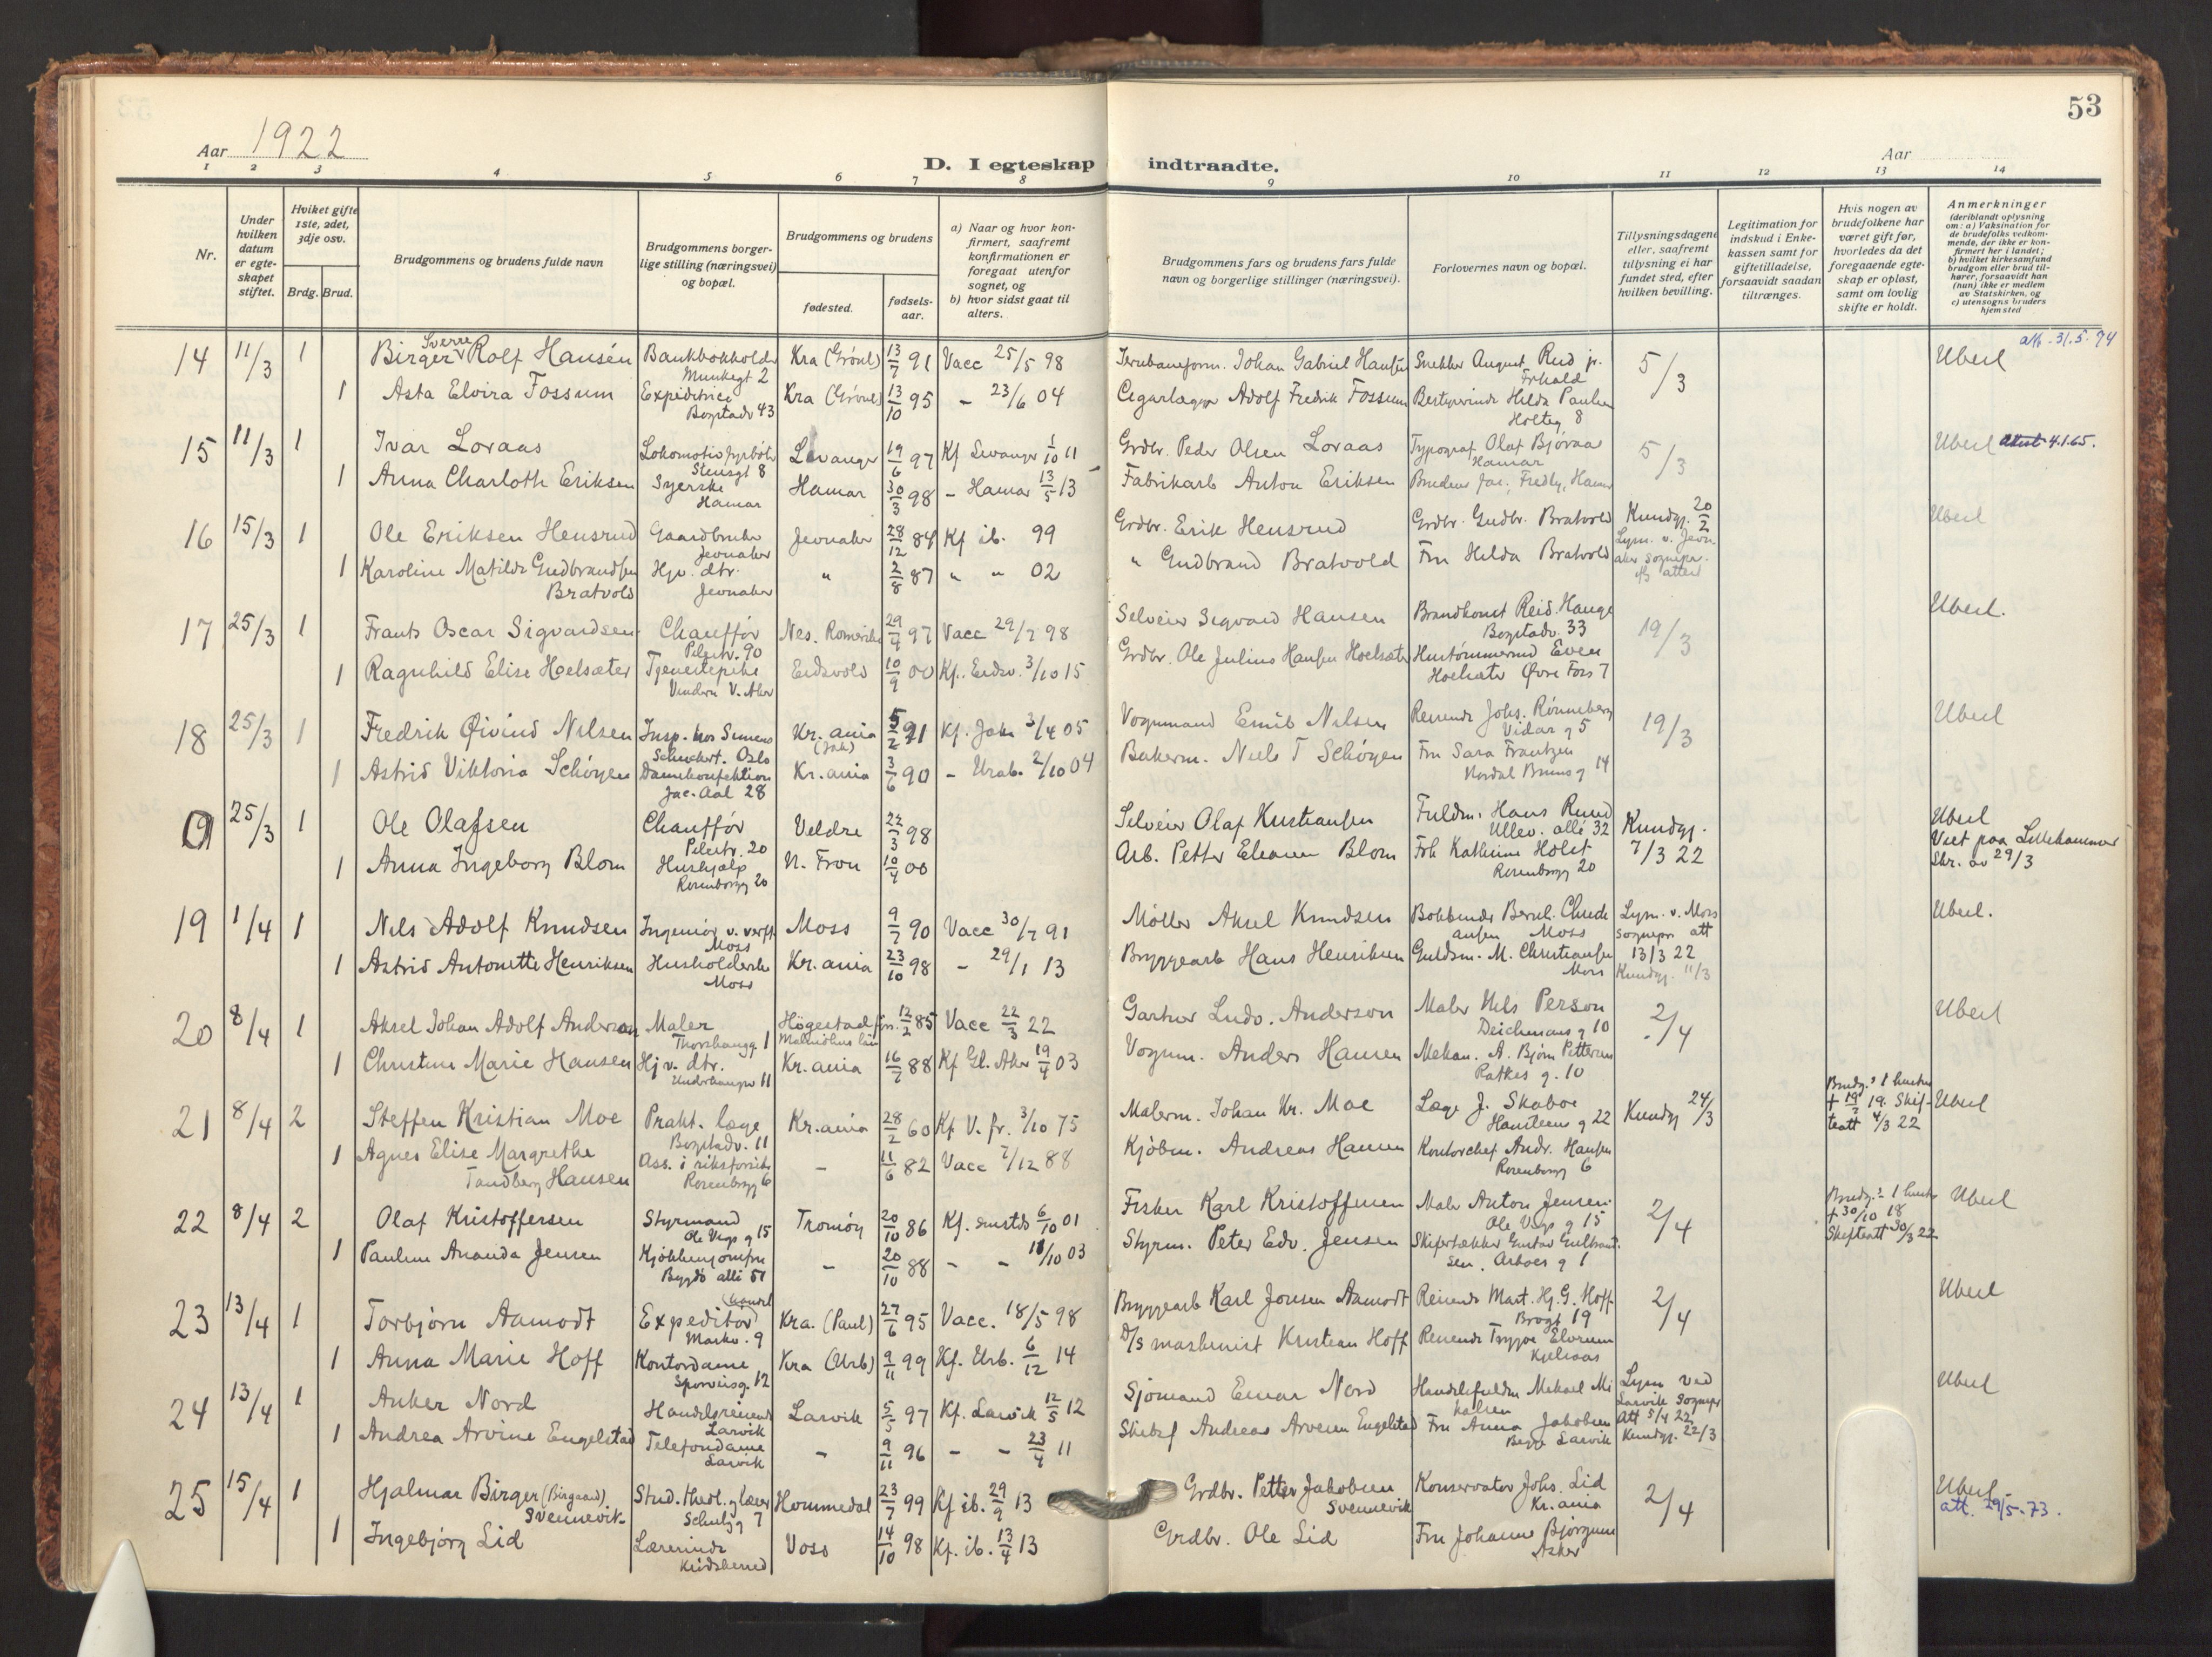 53
Aar 1922
D. I egteskap indtraadte.
Aar
1 2 3 4 5 6 7 8 9 10 11 12 13 14
Nr.
Under hvilken datum er egteskapet stiftet.
Hviket gifte 1ste, 2det, 3dje osv.
Brdg. Brud.
Brudgommens og brudens fulde navn
Brudgommens borgerlige stilling (næringsvei) og bopæl.
Brudgommens og brudens
fødested.
fødselsaar.
a) Naar og hvor konfirmert, saafremt konfirmationen er foregaat utenfor sognet, og
b) hvor sidst gaat til alters.
Brudgommens fars og brudens fars fulde navn og borgerlige stillinger (næringsvei).
Forlovernes navn og bopæl.
Tillysningsdagene eller, saafremt tillysning ei har fundet sted, efter hvilken bevilling.
Legitimation for indskud i Enkekassen samt for giftetilladelse, forsaavidt saadan tiltrænges.
Hvis nogen av brudefolkene har været gift før, hvorledes da det foregaaende egteskap er opløst, samt om lovlig skifte er holdt.
Anmerkninger
(deriblandt oplysning om: a) Vaksination for de brudefolks vedkommende, der ikke er konfirmert her i landet; b) hvilket kirkesamfund brudgom eller brud tilhører, forsaavidt han (hun) ikke er medlem av Statskirken, og c) utensogns bruders hjemsted
14 11/3 1 Birger Sverre Rolf Hansen Bankbokholder Munkegt 2 Kra (Grønl) 13/7 91 Vacc 25/5 98 Johan Gabriel Hansen Snekker August Rud jr. 5/3 Uberl att. 31.5.74
1 Asta Elvira Fossum Expeditrice Bogstadv 43 Kra (Grønl) 13/10 95 - 23/6 04 Adolf Fredrik Fossum Hilda Paulsen Holteg 8
15 11/3 1 Ivar Loraas Lokomotivfyrbøter Stensgt 8 Levanger 19/6 97 Kf Levanger 1/10 11 Grdbr. Peder Olsen Loraas Typograf Olaf Bjøraas Hamar 5/3 Uberl 4.1.65.
1 Anna Charlotte Eriksen Syerske Hamar Hamar 30/3 98 - Hamar 13/5 13 Fabrikarb Anton Eriksen Brudens far, Fredly, Hamar
16 15/3 1 Ole Eriksen Hensrud Gaardbruker Jevnaker Jevnaker 28/12 84 Kf ib. 99 Grdbr. Erik Hensrud Grdbr. Gudbr. Bratvold Kundgj. 20/2 Lysn. v. Jevnaker sognepr. Uberl
1 Karoline Matilde Gudbrandsen Bratvold Hjv. dtr. Jevnaker " 2/8 87 " " 02 " Gudbrand Bratvold Fru Hilda Bratvold
17 25/3 1 Frants Oscar Sigvardsen Chauffør Pilestr. 90 Nes. Romerike 29/4 97 Vacc 29/7 98 Selveier Sigvard Hansen Reid. Hauge Bogstadv. 33 19/3 Uberl.
1 Ragnhild Elise Hoelsæter Tjenestepike Vinderen V. Aker Eidsvold 10/9 00 Kf. Eidsv. 3/10 15 Grdbr. Ole Julius Hansen Hoelsæter Even Hoelsæter Øvre Foss 7
18 25/3 1 Fredrik Øivind Nilsen Insp. hos Siemens Schuckert. Oslo Kr.ania (Jak) 5/2 91 Kf. Jakr 3/4 05 Vognmand Emil Nilsen Reisende Johs. Rønneberg Vidar g 5 19/3 Uberl
1 Astrid Viktoria Schøyen Damekonfektion Jac. Aal 28 Kr.ania 3/6 90 - Uran. 2/10 04 Bakerm. Niels T Schøyen Fru Sara Frantzen Nordal Bruns g 14
25/3 1 Ole Olafsen Chauffør Pilestr. 20 Veldre 22/3 98 Selveier Olaf Kristiansen Fuldm. Hans Ruud Ullev. allé 32 Kundgj. 7/3 22 Uberl Viet paa Lillehammer Skr. av 29/3
1 Anna Ingeborg Blom Hushjælp Rosenborgg 20 N. Fron 10/4 00 Arb. Petter Blom Frk Kathrine Holst Rosenborgg 20
19 1/4 1 Nils Adolf Knudsen Ingeniør v. verft Moss Moss 9/7 90 Vacc 30/7 91 Møller Aksel Knudsen Bokbinder Bernh. Christiansen Moss Lysn. v. Moss sognepr. att 13/3 22 Kundgj. 11/3 Uberl.
1 Astrid Antonette Henriksen Husholderske Moss Kr.ania 23/10 98 - 29/1 13 Bryggearb Hans Henriksen Guldsm. M. Christiansen Moss
20 8/4 1 Aksel Johan Adolf Anderson Maler Thorshaugg 1 Högestad Malmöhus län 12/2 85 Vacc 22/3 22 Gartner Ludv. Anderson Maler Nils Person Deichmans g 10 2/4 Uberl
1 Christine Marie Hansen Hjv. dtr. Underhaugsv 11 Kr.ania 16/7 88 Kf Gl. Aker 19/4 03 Vognm. Anders Hansen Mekan. A. Bjørn Pettersen Ratkes g. 10
21 8/4 2 Steffen Kristian Moe Prakt. læge Bogstadv. 11 Kr.ania 28/2 60 Kf V. fr. 3/10 75 Malerm. Johan Kr. Moe Læge J. Skaboe Hansteens g 22 Kundgj 24/3 Brudg.s 1 hustru + 19/2 19. Skifteatt 4/3 22 Uberl
1 Agnes Elise Margrethe Tandberg Hansen Ass. i riksforsikr Rosenborgg 6 - 11/6 82 Vacc 7/12 88 Kjøbm. Andreas Hansen Kontorchef Andr. Hansen Rosenborgg 6
22 8/4 2 Olaf Kristoffersen Styrmand Ole Vigs g 15 Tromøy 20/10 86 Kf. smstds 6/10 01 Fisker Karl Kristoffersen Maler Anton Jensen Ole Vigs g 15 2/4 Brudg.s 1 hustru + 30/10 18 Skifteatt 30/3 22 Uberl
1 Pauline Amanda Jensen Kjøkkenjomfru Bygdø allé 51 - 20/10 88 - - 11/10 03 Styrm. Peter Edv. Jensen Skifertækker Gustav Gulbrandsen, Arboes g 1
23 13/4 1 Torbjørn Aamodt Expeditør Markv. 9 Kra. (Paul) 27/6 95 Vacc. 18/5 98 Bryggearb Karl Jonsen Aamodt Reisende Mart. Hj. G. Hoff Brogt 19 2/4 Uberl
1 Anna Marie Hoff Kontordame Sporveisg. 12 Kra (Urb) 9/11 99 Kf. Urb. 6/12 14 D/s maskinist Kristian Hoff Reisende Trygve Elvrum Kjelsaas
24 13/4 1 Anker Nord Handelsreisende Larvik Larvik 5/5 97 Kf. Larvik 12/5 12 Sjømand Einar Nord Handelsfuldm Mikael Mikalsen Lysn ved Larvik sognepr Att 5/4 22 Kundgj. 22/3 Uberl
1 Andrea Arvine Engelstad Telefondame Larvik - 9/11 96 - - 23/4 11 Andreas Arvesen Engelstad Fru Anna Jakobsen Begge Larvik
25 15/4 1 Hjalmar Birger (Birgaard) Svennevik Stud. theol. g lærer Schultzg 7 Hommedal 23/7 99 Kf ib. 29/9 13 Grdbr. Petter Jakobsen Svennevik Konservator Johs. Lid Kr.ania 2/4 Uberl. att. 29/5-73.
1 Ingebjørg Lid Lærerinde Krødsherred Voss 14/10 98 Kf. ib. 13/4 13 Grdbr. Ole Lid Fru Johanne Bjørgum Asker